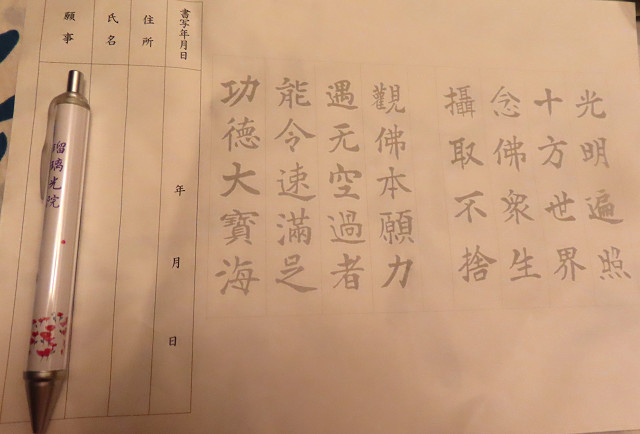 光明遍照
十方世界
念佛衆生
攝取不捨
觀佛本願力
遇无空過者
能令速滿足
功德大寶海
書写年月日
年月日
住所
氏名
願事
瑠璃光院